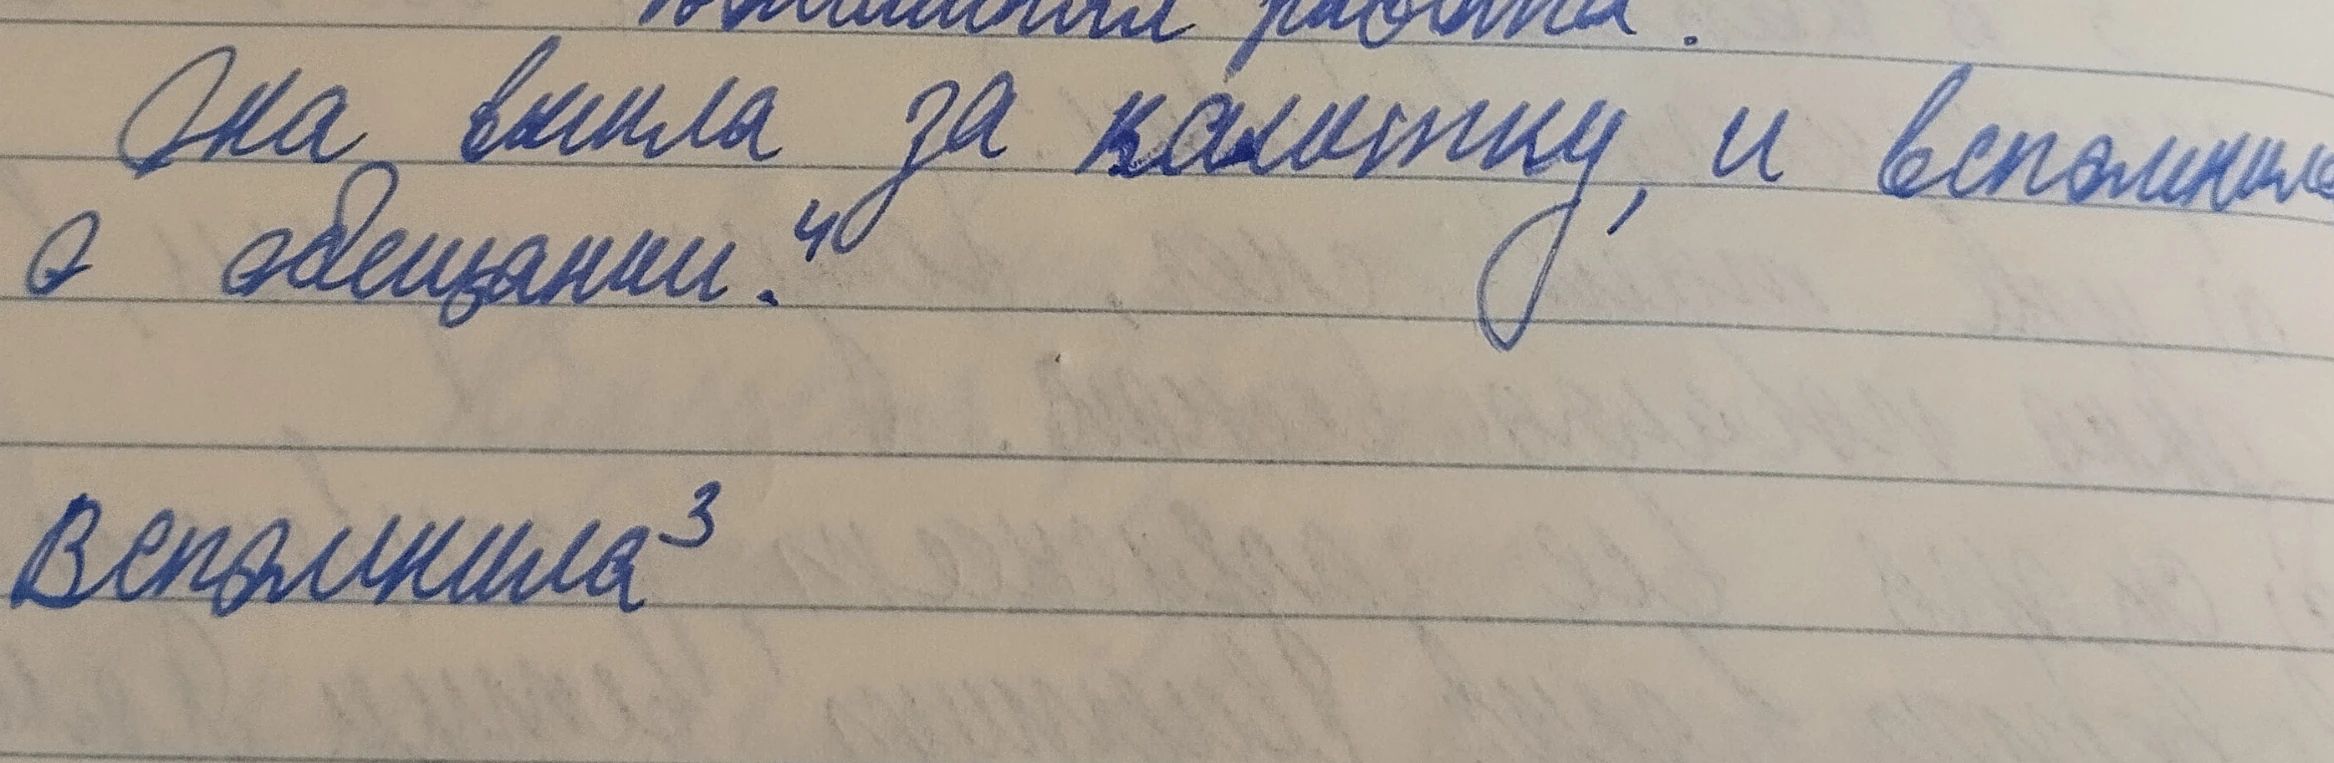 Домашняя работа.
Она вышла за калитку, и вспомнила
о обещании.⁴
Вспомнила³